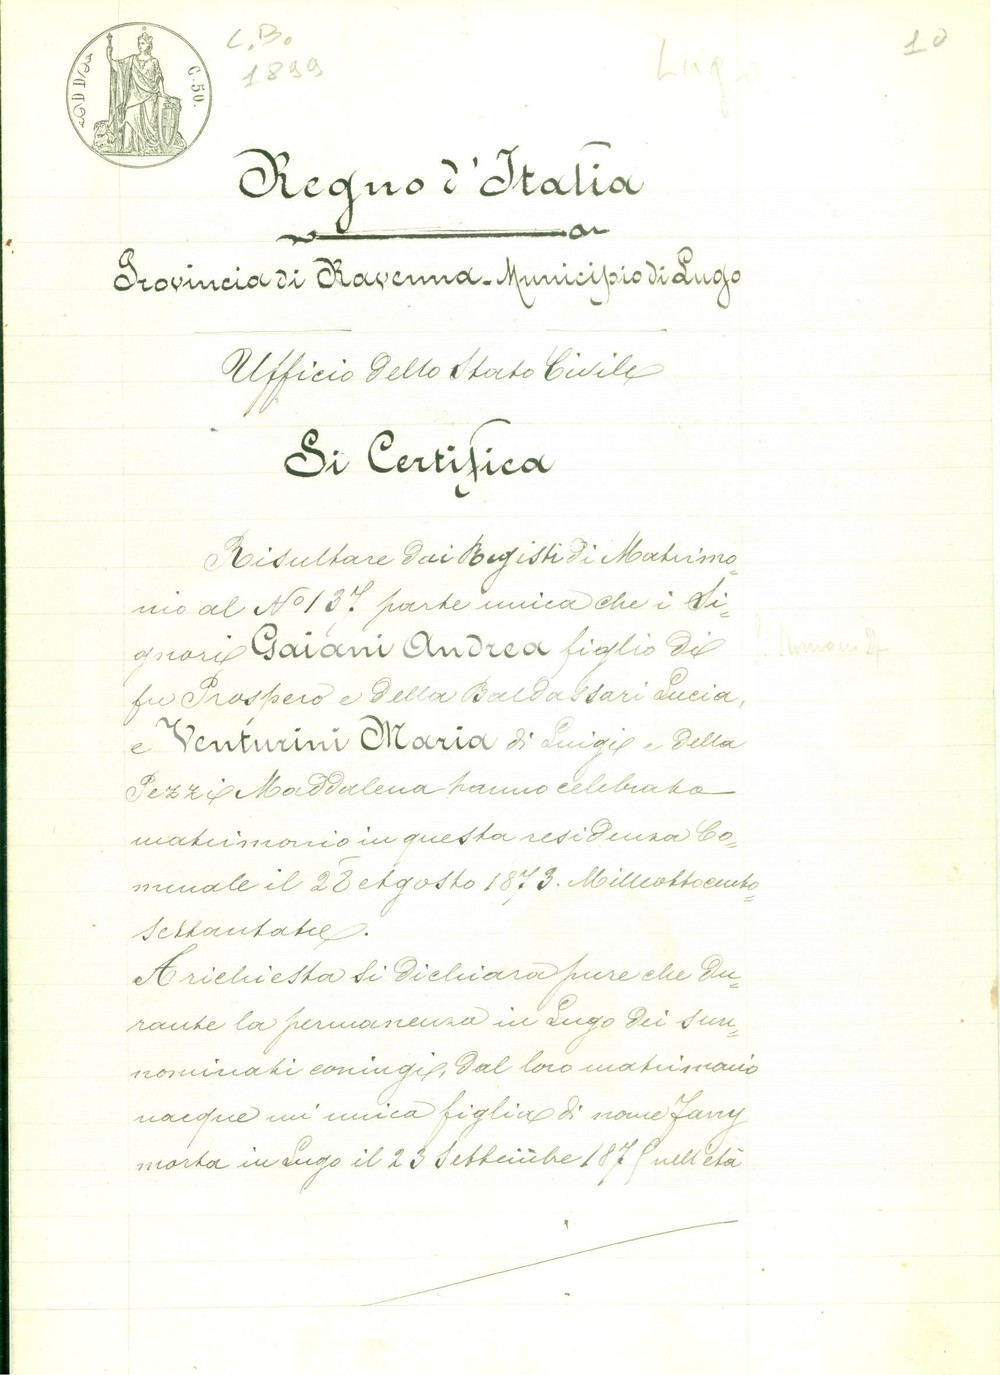 C. 50.
C.B.
1899
Lugo
10
Regno d'Italia
Provincia di Ravenna - Municipio di Lugo
Ufficio dello Stato Civile
Si Certifica
Risultare dai Registi di Matrimo=
nio al No 137 parte unica che i Si=
gnori Gaiani Andrea figlio di
fu Prospero e della Baldassari Lucia,
e Venturini Maria di Luigi e della
Pezzi Maddalena hanno celebrato
matrimonio in questa residenza Co=
munale il 28 Agosto 1873. Milleottocento=
settantatre.
A richiesta si dichiara pure che du=
rante la permanenza in Lugo dei sun=
nominati coniugi, dal loro matrimonio
nacque un' unica figlia di nome Fanny
morta in Lugo il 23 Settembre 187 nell'età